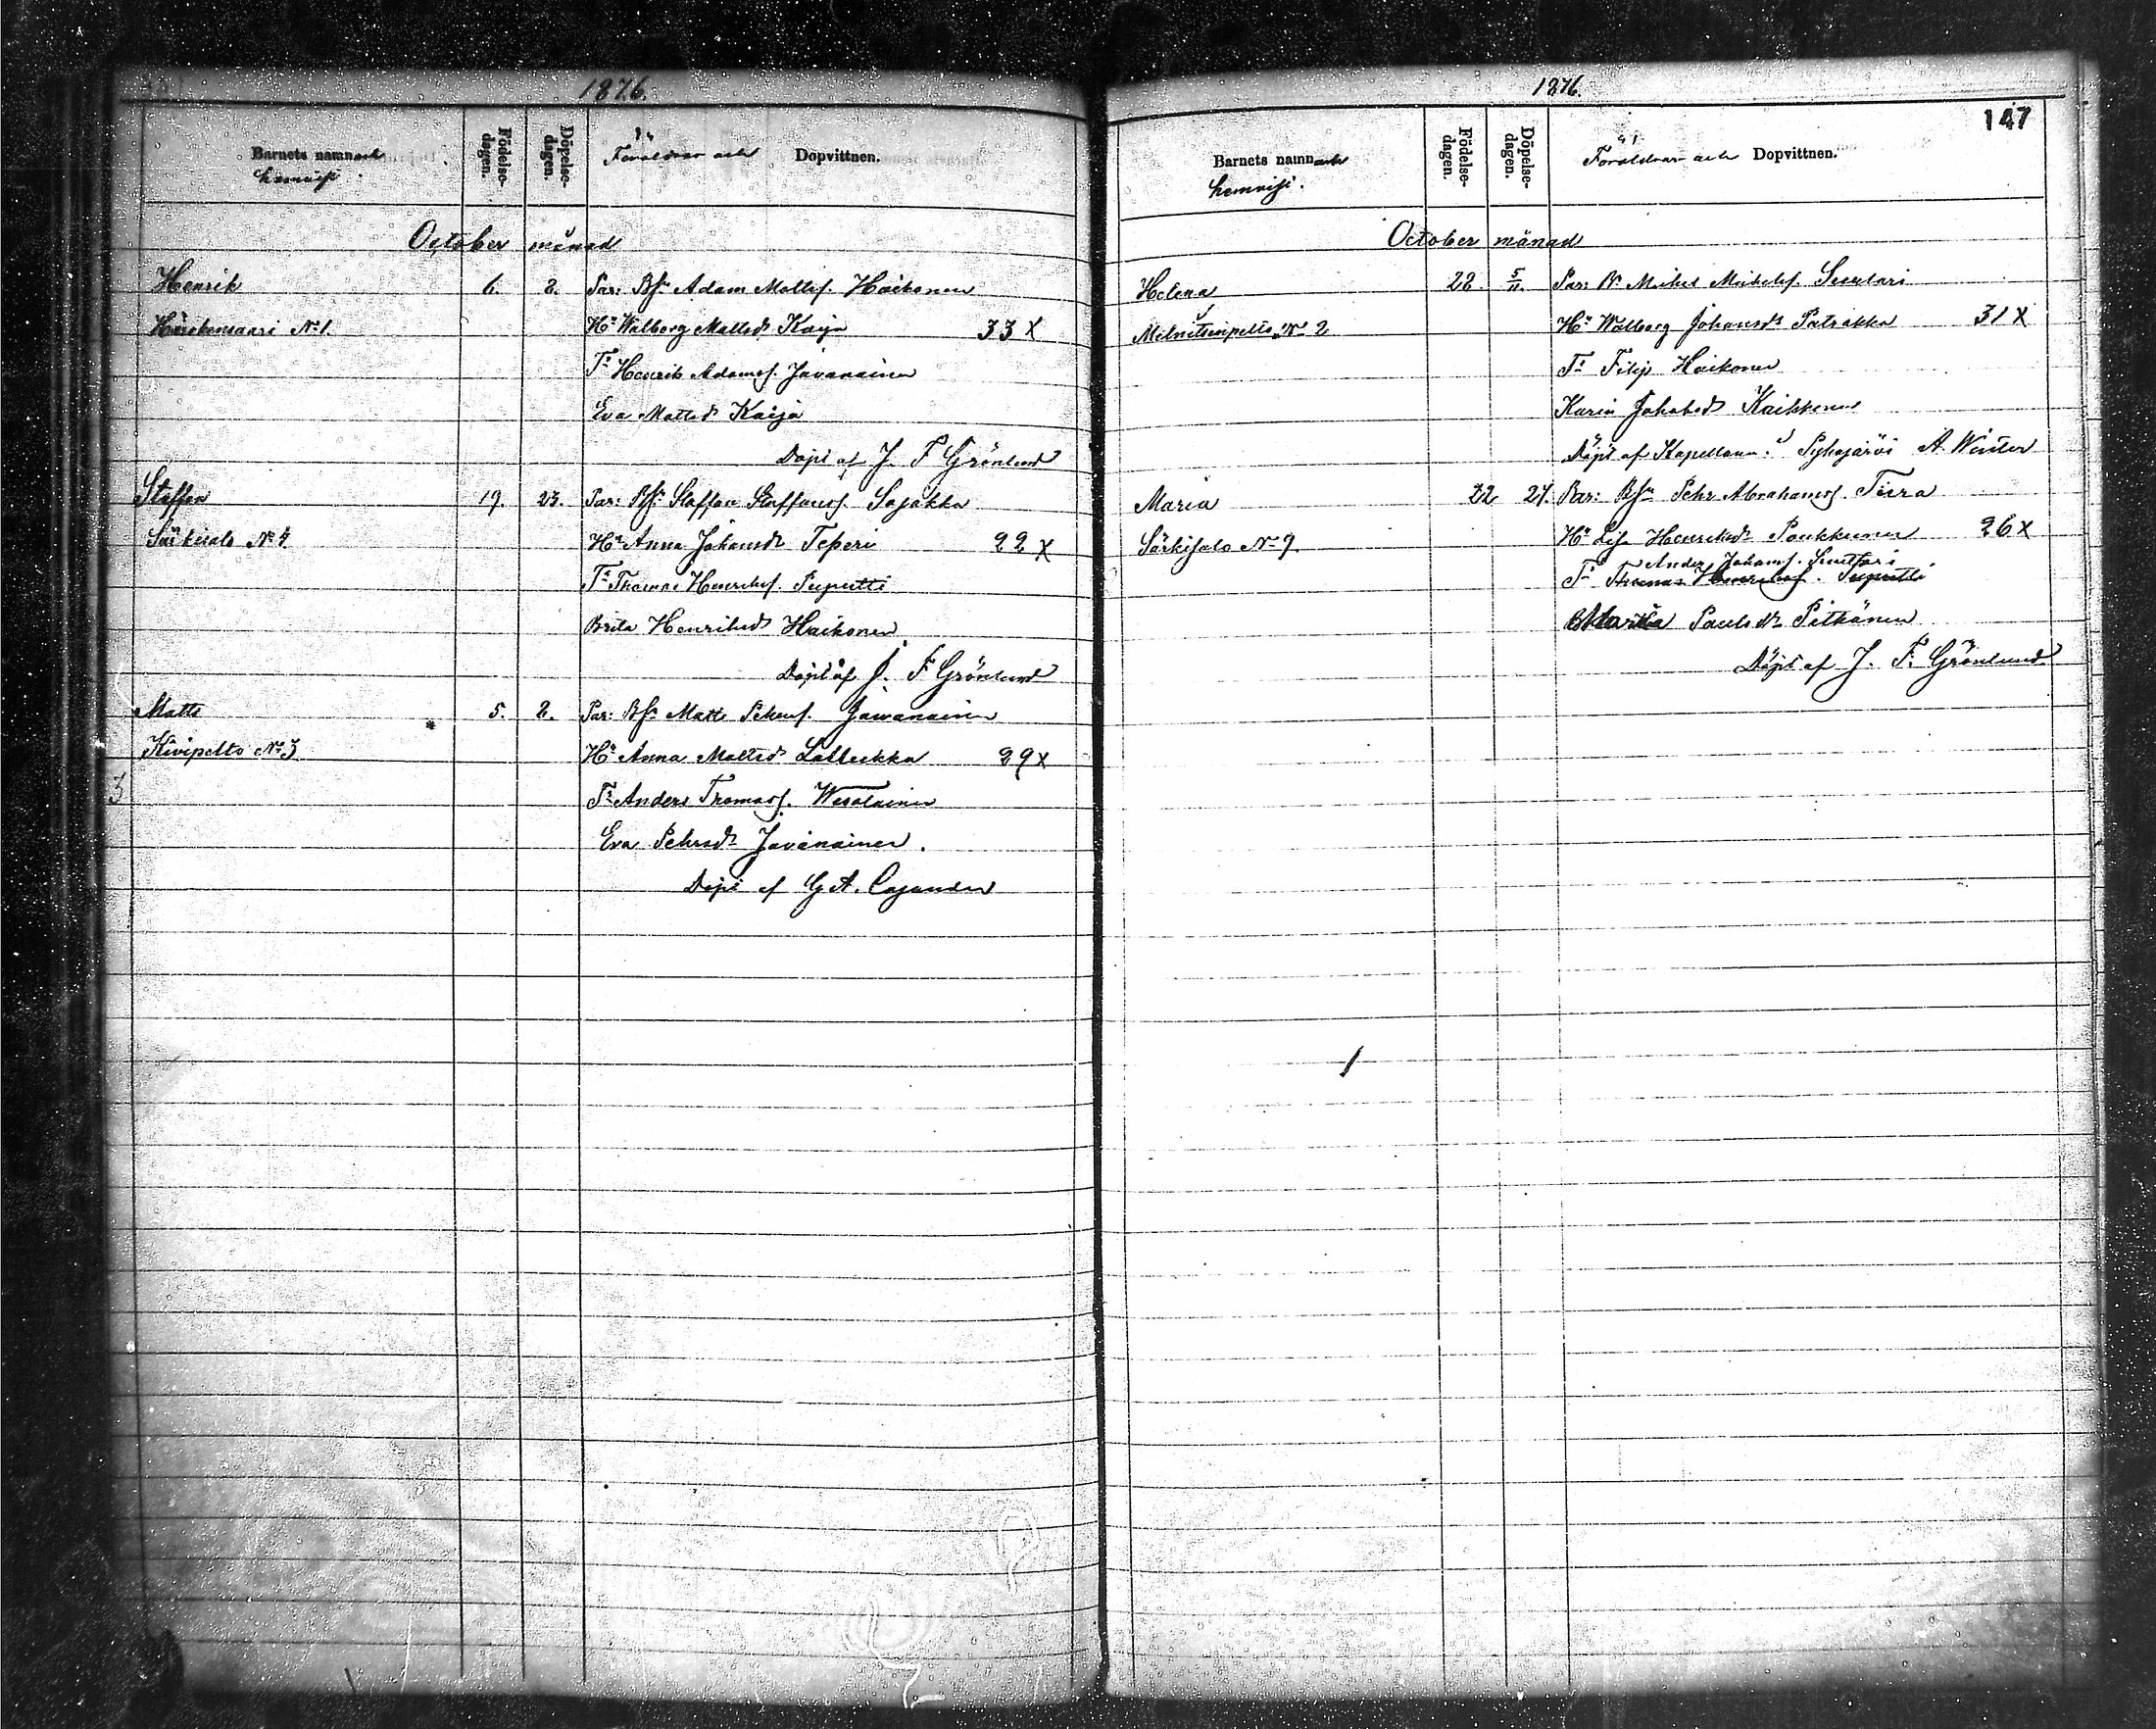 1876.
Barnets namn och hemvist.
Födelse-dagen.
Döpelse-dagen.
Föräldrar och Dopvittnen.
October månad
Henrik 6. 8. Par: Bs. Adam Mattss. Haikonen
N:o 1. Hu Walborg Mattsdr Kaija 33 X
Tr Henrik Adamss. Javanainen
Eva Mattsdr Kaija
Döpt af J. F Grönlund
Staffan 19. 23. Par: Bs. Staffan Staffanss. Sajakka
Särkisalo No 4. Hu Anna Johansdr Teperi 22 X
Tr Thomas Henrikss. Puputti
Brita Henriksdr Haikonen
Döpt af J. F Grönlund
Matts 5. 8. Par: Bs. Matts Pehrss. Javanainen
Kivipelto No 3 Hu Anna Mattsdr 29 X
3 Tr Anders Thomass. Wesalainen
Eva Pehrsdr Javanainen.
Döpt af G A. Cajander
1876.
147
Barnets namn och hemvist.
Födelse-dagen.
Döpelse-dagen.
Föräldrar och Dopvittnen.
October månad
Helena 28. 5/11. Par: B. Mickel Mickelss.
No 2 Hu Walborg Johansdr Patrakka 31 X
Tr Filip Haikonen
Karin Jakobsdr Kaikkonen
Döpt af Kapellanen i Pyhäjärvi A. Winter
Maria 22 27. Par: Bs. Pehr Abrahamss. Tirra
Särkisalo No 9. Hu Lisa Henriksdr Poukkunen 26 X
Anders Johanss.
Tr Thomas Henrikss. Puputti
Maria Paulsdr Pitkänen
Döpt af J. F. Grönlund